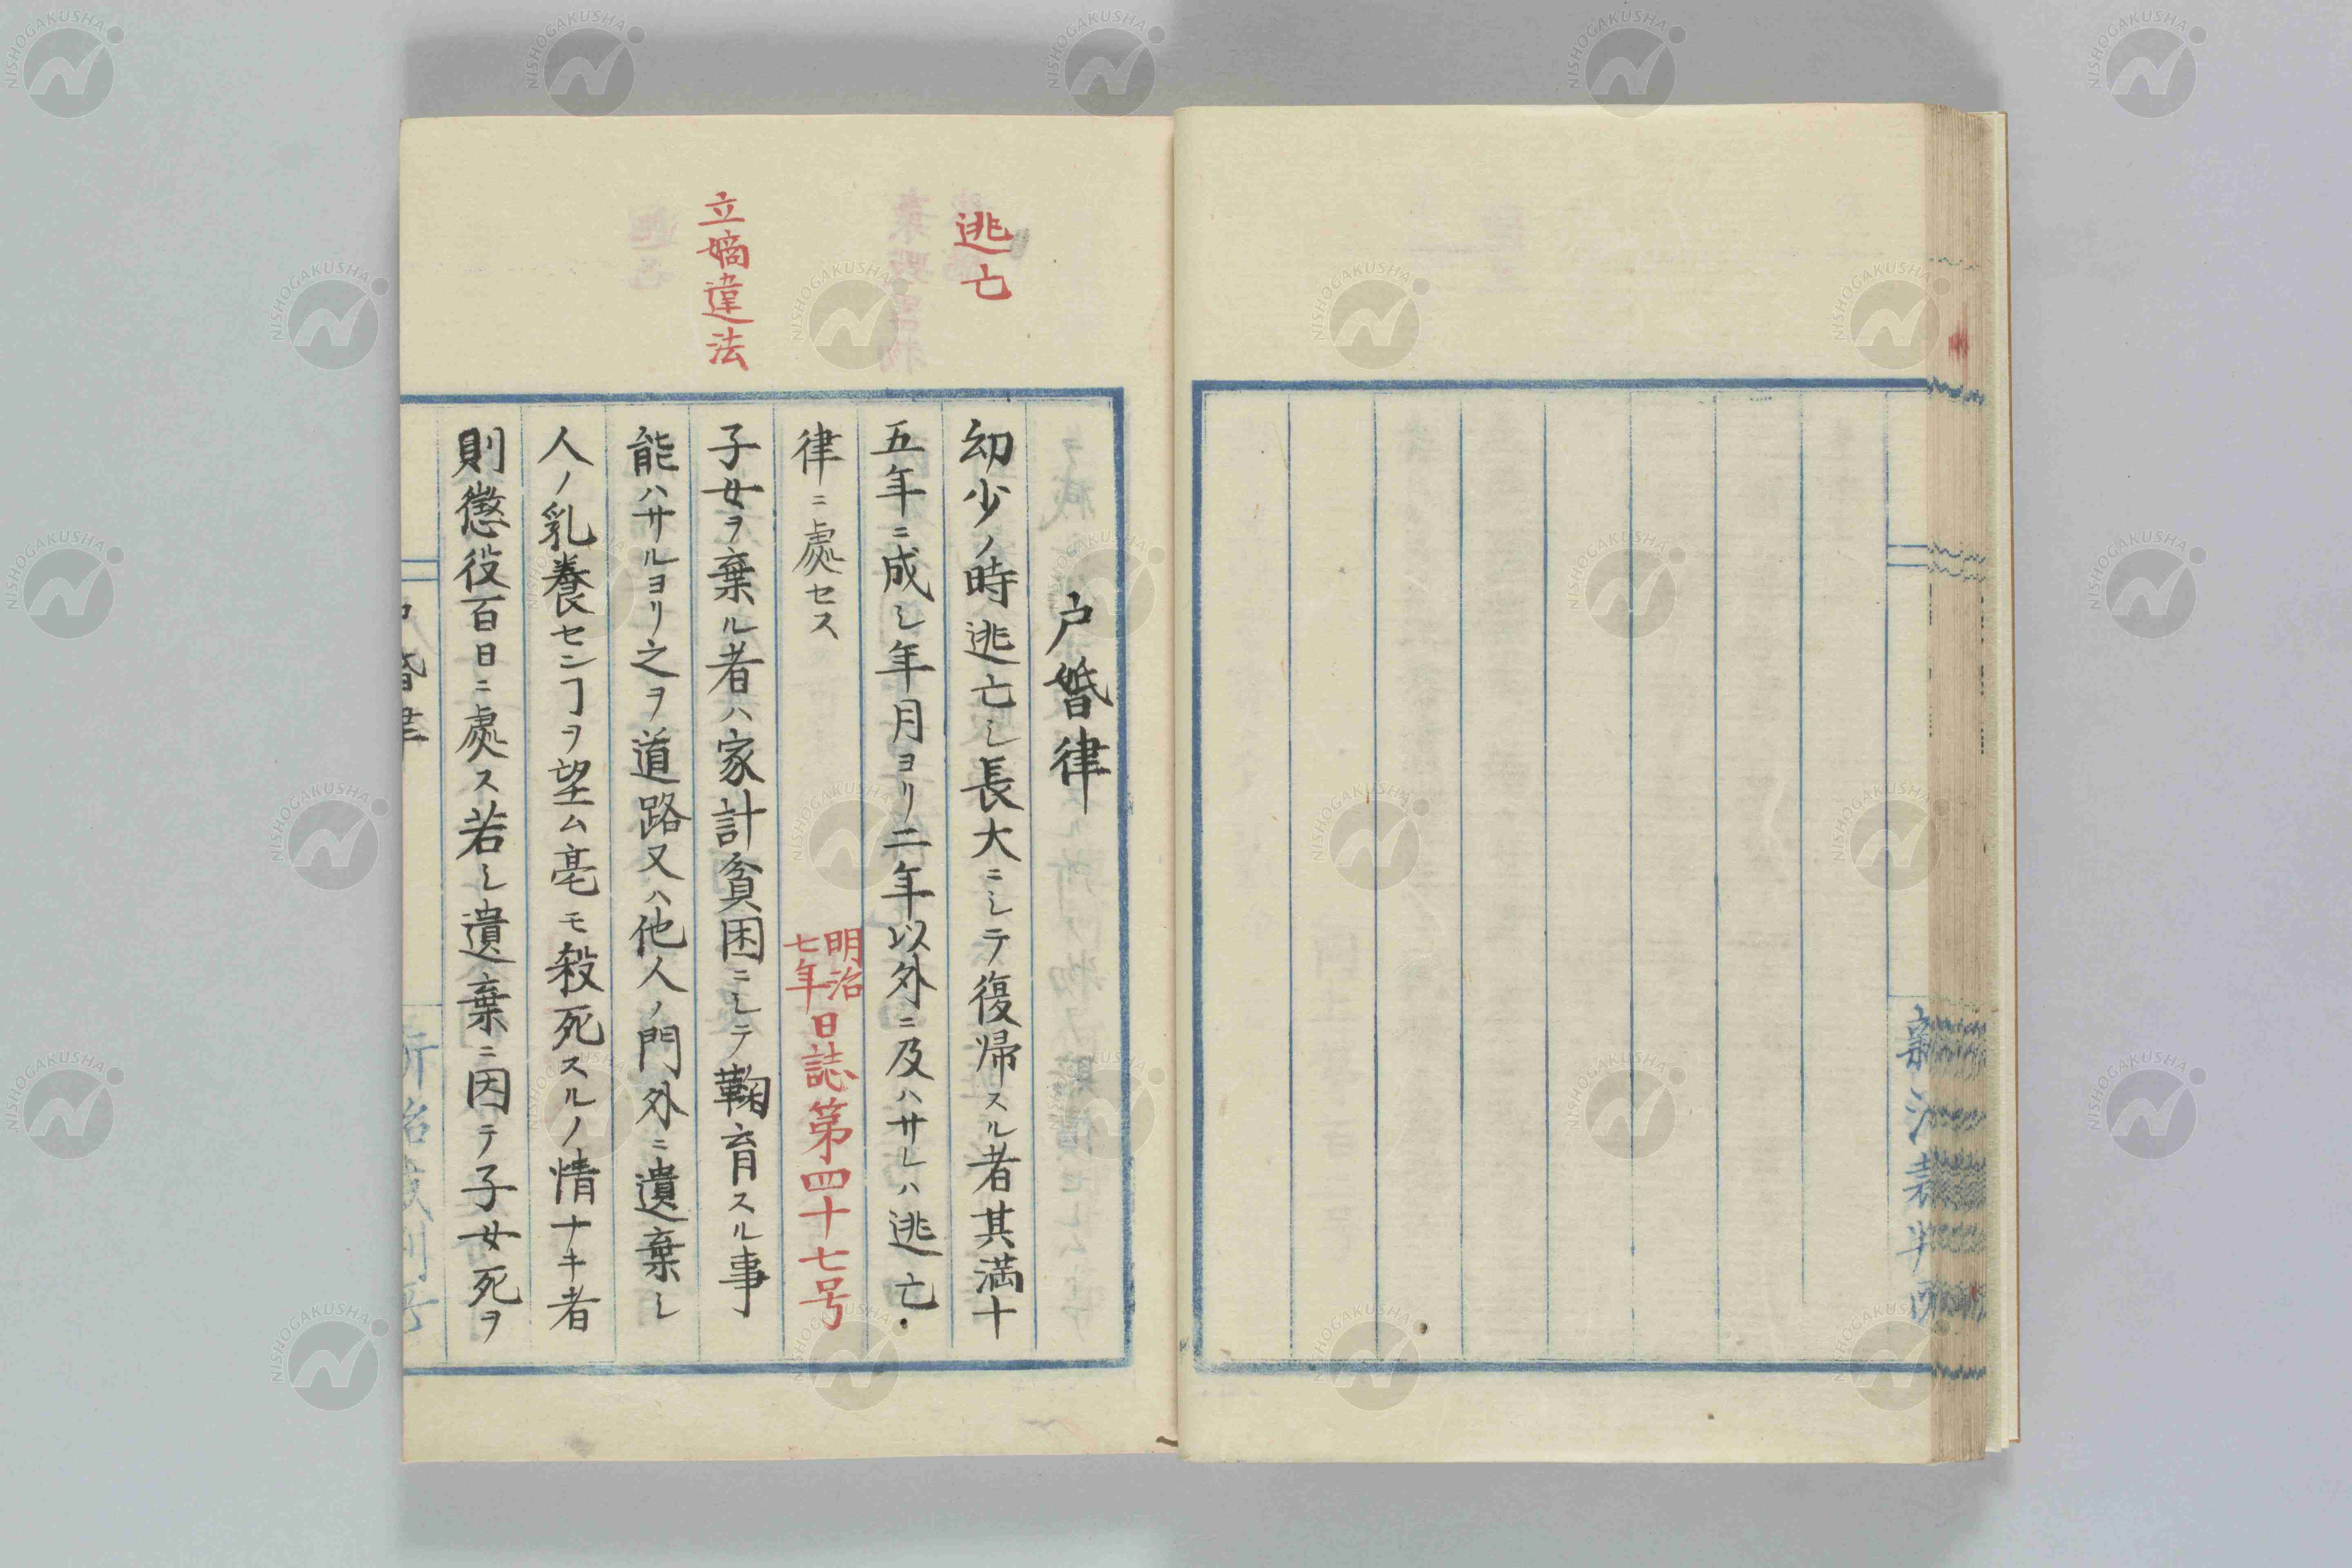 新潟裁判所
逃亡
立嫡違法
戸婚律
幼少ノ時逃亡シ長大ニシテ復帰スル者其満十
五年ニ成シ年月ヨリ二年以外ニ及ハサレハ逃亡
律ニ處セス 明治七年日誌第四十七号
子女ヲ棄ル者ハ家計貧困ニシテ鞠育スル事
能ハサルヨリ之ヲ道路又ハ他人ノ門外ニ遺棄シ
人ノ乳養センヿヲ望ム毫モ殺死スルノ情ナキ者
則懲役百日ニ處ス若シ遺棄ニ因テ子女死ヲ
戸婚律
NISHOGAKUSHA